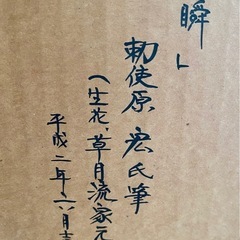 瞬」
勅使原 宏氏筆
(生花、草月流家元
平成二年六月吉